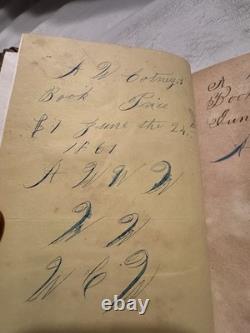 A W
Book Price
$1 June the 24
1861
A W W W
W W
W C W
A
Book
June
© watermark.com